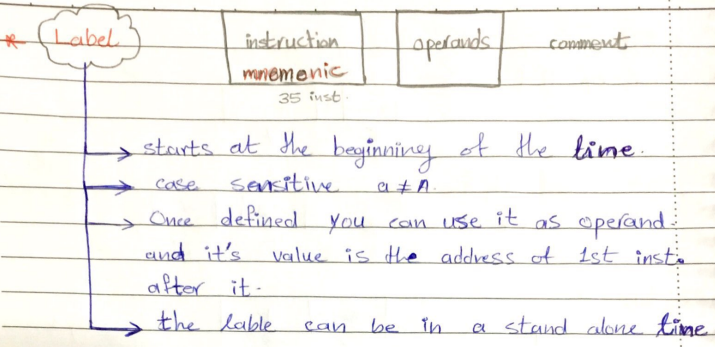 * Label instruction operands comment
mnemonic
35 inst.
→ starts at the beginning of the time.
→ case sensitive a ≠ A.
→ Once defined you can use it as operand
and it's value is the address of 1st inst.
after it.
→ the lable can be in a stand alone time